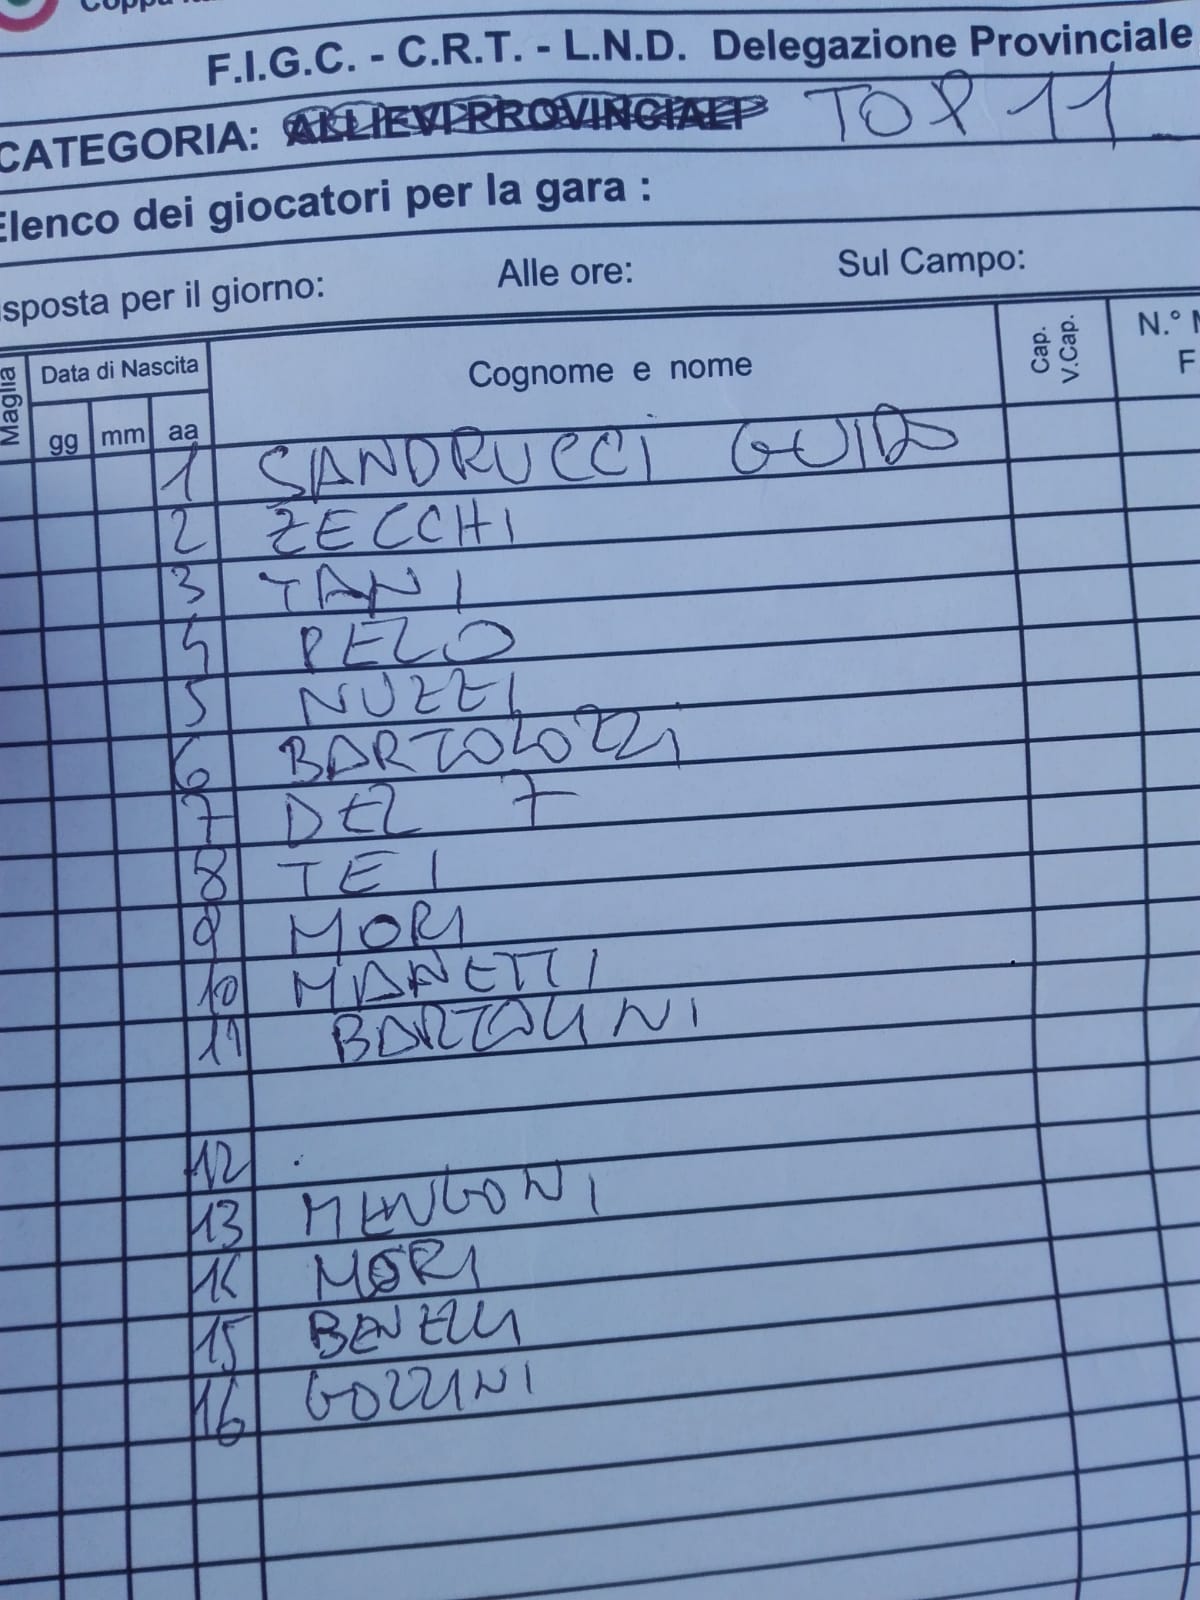 F.I.G.C. - C.R.T. - L.N.D. Delegazione Provinciale
CATEGORIA: ALLIEVI PROVINCIALI TOP 11
Elenco dei giocatori per la gara :
sposta per il giorno: Alle ore: Sul Campo:
Maglia Data di Nascita Cognome e nome Cap. V.Cap. N.°
gg mm aa F
1 SANDRUCCI GUIDO
2 ZECCHI
3 TANI
4 PELO
5 NUZZI
6 BARTOLOZZI
7 DEL 7
8 TEI
9 MORI
10 MANETTI
11 BARTOLINI
12
13 MENGONI
14 MORI
15 BENELLI
16 GOZZINI